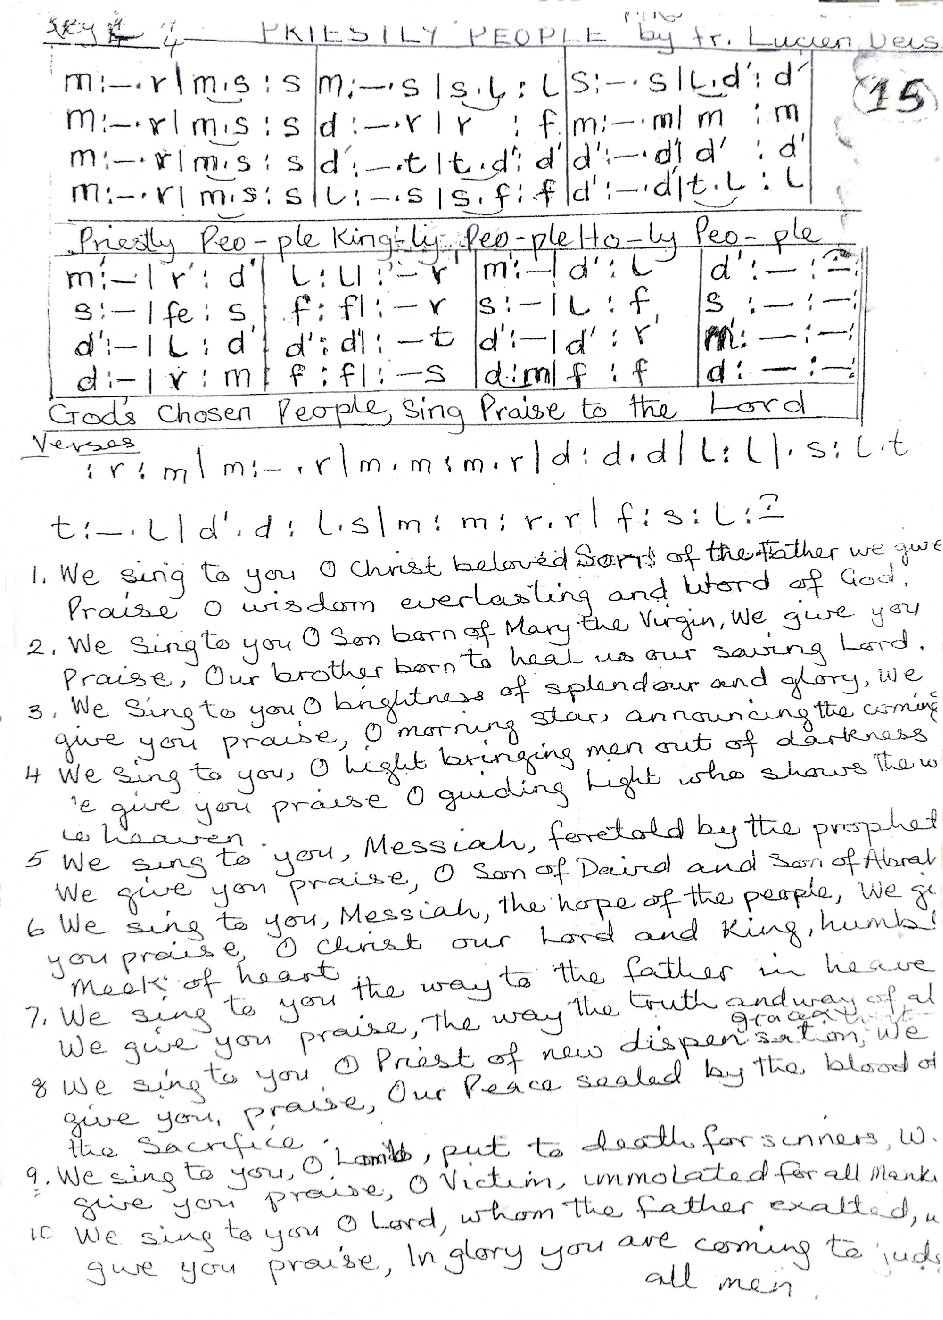 Key 4 PRIESTLY PEOPLE by fr. Lucien Deis
15
m:–.r|m.s:s|m:–.s|s.L:L|S:–.s|L.d':d'
m:–.r|m.s:s|d:–.r|r :f|m:–.m|m :m
m:–.r|m.s:s|d':–.t|t.d':d'|d':–.d'|d' :d'
m:–.r|m.s:s|L:–.s|s.f:f|d':–.d'|t.L:L
Priestly Peo-ple King-ly Peo-ple Ho-ly Peo-ple
m':–|r':d'|L:L|:–r'|m':–|d':L|d':–:–
s:–|fe:s|f:f|:–r|s:–|L:f|s:–:–:
d':–|L:d'|d':d'|:–t|d':–|d':r'|m:–:–:
d:–|r:m|f:f|:–s|d:m|f:f|d:–:–:
God's Chosen People, Sing Praise to the Lord
Verses
:r:m|m:–.r|m.m:m.r|d:d.d|L:L|.s:L.t
t:–.L|d'.d:L.s|m:m:r.r|f:s:L:–
1. We sing to you O Christ beloved Son of the Father we give
Praise O wisdom everlasting and Word of God.
2. We Sing to you O Son born of Mary the Virgin, We give you
Praise, Our brother born to heal us our saving Lord.
3. We Sing to you O brightness of splendour and glory, We
give you praise, O morning star, announcing the coming
4 We Sing to you, O Light bringing men out of darkness
'e give you praise O guiding Light who shows the w
to heaven.
5 We sing to you, Messiah, foretold by the prophet
We give you praise, O Son of David and Son of Abrah
6 We sing to you, Messiah, the hope of the people, We gi
you praise, O Christ our Lord and King, humbl
Meek of heart
7. We sing to you the way to the father in heave
We give you praise, The way the truth and way of al
grace
8 We sing to you O Priest of new dispensation, We
give you, praise, Our Peace sealed by the blood of
the Sacrifice.
9. We sing to you, O Lamb, put to death for sinners, W.
give you praise, O Victim, immolated for all Manki
10 We sing to you O Lord, whom the father exalted, w
give you praise, In glory you are coming to judg
all men.